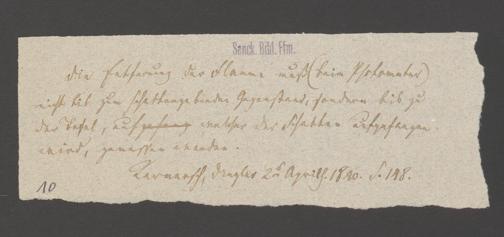 Senck. Bibl. Ffm.
Die Entfernung der Flamme muß (beim Photometer)
nicht bis zum schattengebenden Gegenstand, sondern bis zu
der Tafel, auf welcher der Schatten aufgefangen
wird, gemessen werden.
Karmarsch, Dingler 2t Aprilh. 1840. S. 148.
10